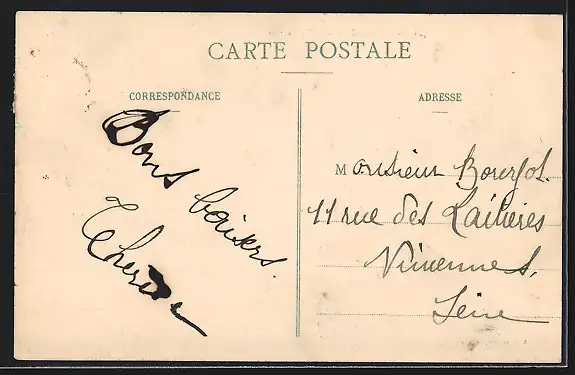 CARTE POSTALE
CORRESPONDANCE
Bons baisers.
Thérèse
ADRESSE
Monsieur Bourjot.
11 rue des Laitières
Vincennes.
Seine